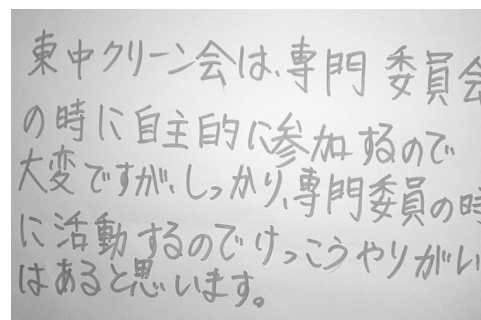 東中クリーン会は、専門委員会
の時に自主的に参加するので
大変ですが、しっかり、専門委員の時
に活動するのでけっこうやりがい
はあると思います。